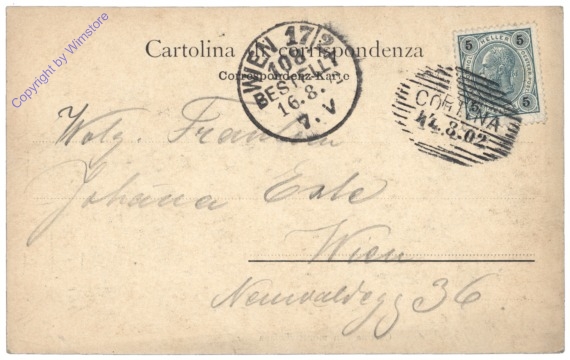 Copyright by Wimstore
Cartolina di corrispondenza
Correspondenz-Karte
WIEN 17/2
109
BESTELLT
16.8.
7.V
5 HELLER 5
5 5
CORTINA
14.8.02
Wolg. Fräulein
Johana Exle
Wien
Neuwaldegg 36